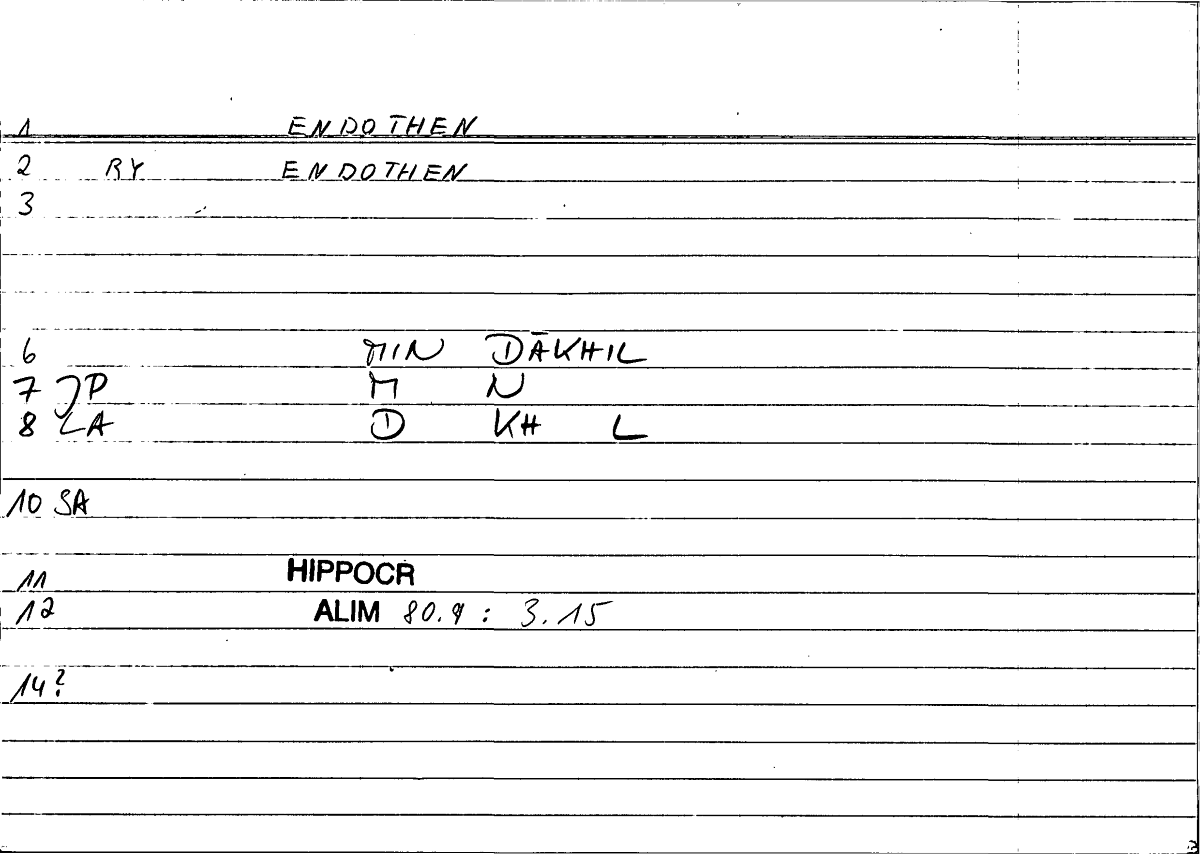 1 ENDOTHEN
2 RY ENDOTHEN
3
6 MIN DĀKHIL
7 JP M N
8 LA D KH L
10 SA
11 HIPPOCR
12 ALIM 80.9 : 3.15
14?